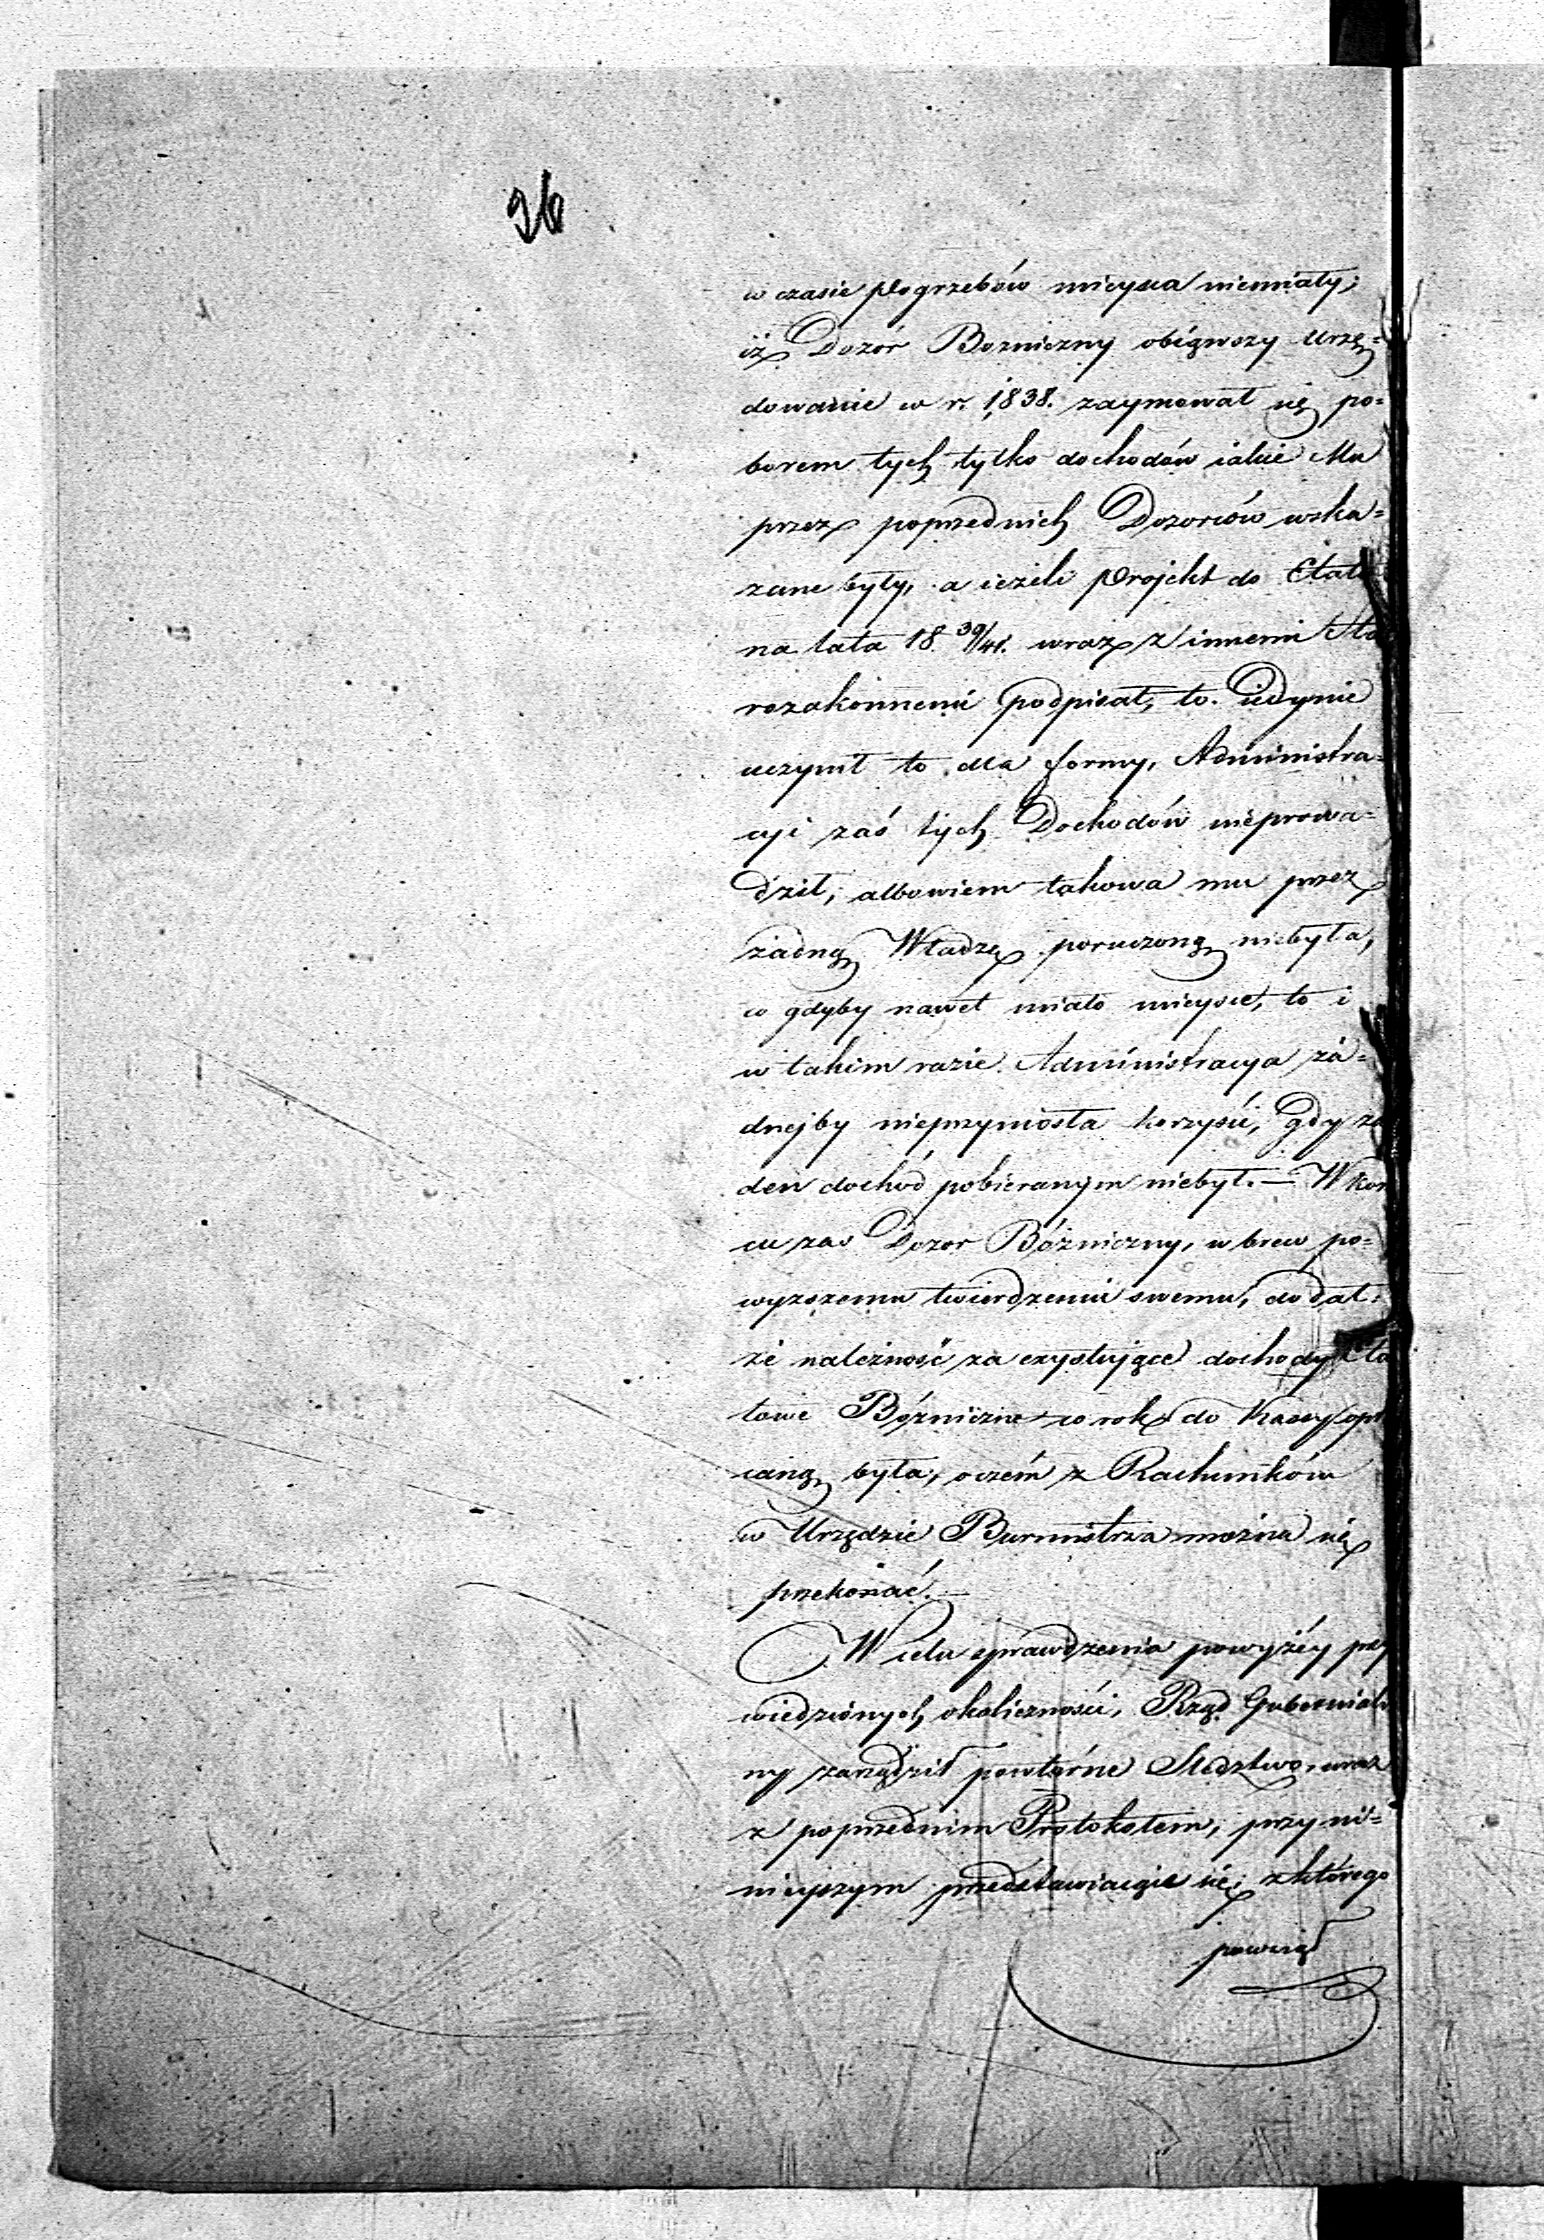 26
w czasie pogrzebów mieysca niemiały;
iż Dozór Bozniczny obiąwszy Urzę=
dowanie w r. 1838. zaymował się po=
borem tych tylko dochodów iakie Mu
przez poprzednich Dozorców wska=
zane były, a ieżeli Projekt do Etatu
na lata 18 39/41. wraz z innemi Sta
rozakonnemi podpisał, to iedynie
uczynił to dla formy, Administra=
cyi zaś tych Dochodów nieprowa=
dził, albowiem takowa mu przez
żadną Władzę poruczoną niebyła,
co gdyby nawet miało mieysce, to i
w takim razie Administracya ża=
dnejby nieprzyniosła korzyści, gdy ża
den dochód pobieranym niebył. — W koń
cu zaś Dozor Bóżniczny, w brew po=
wyższemu twierdzeniu swemu, dodał:
że należność za exystujące dochody Eta
towe Bóżniczne co rok do Kassy opł
caną była, o czém z Rachunków
w Urzędzie Burmistrza można się
przekonać. —
W celu sprawdzenia powyżéy przy
wiedzionych okoliczności, Rząd Gubernial
ny zarządził powtórne Śledztwo, wraz
z poprzednim Protokołem, przy ni=
nieyszym przedstawiaiące się; z którego
powziął